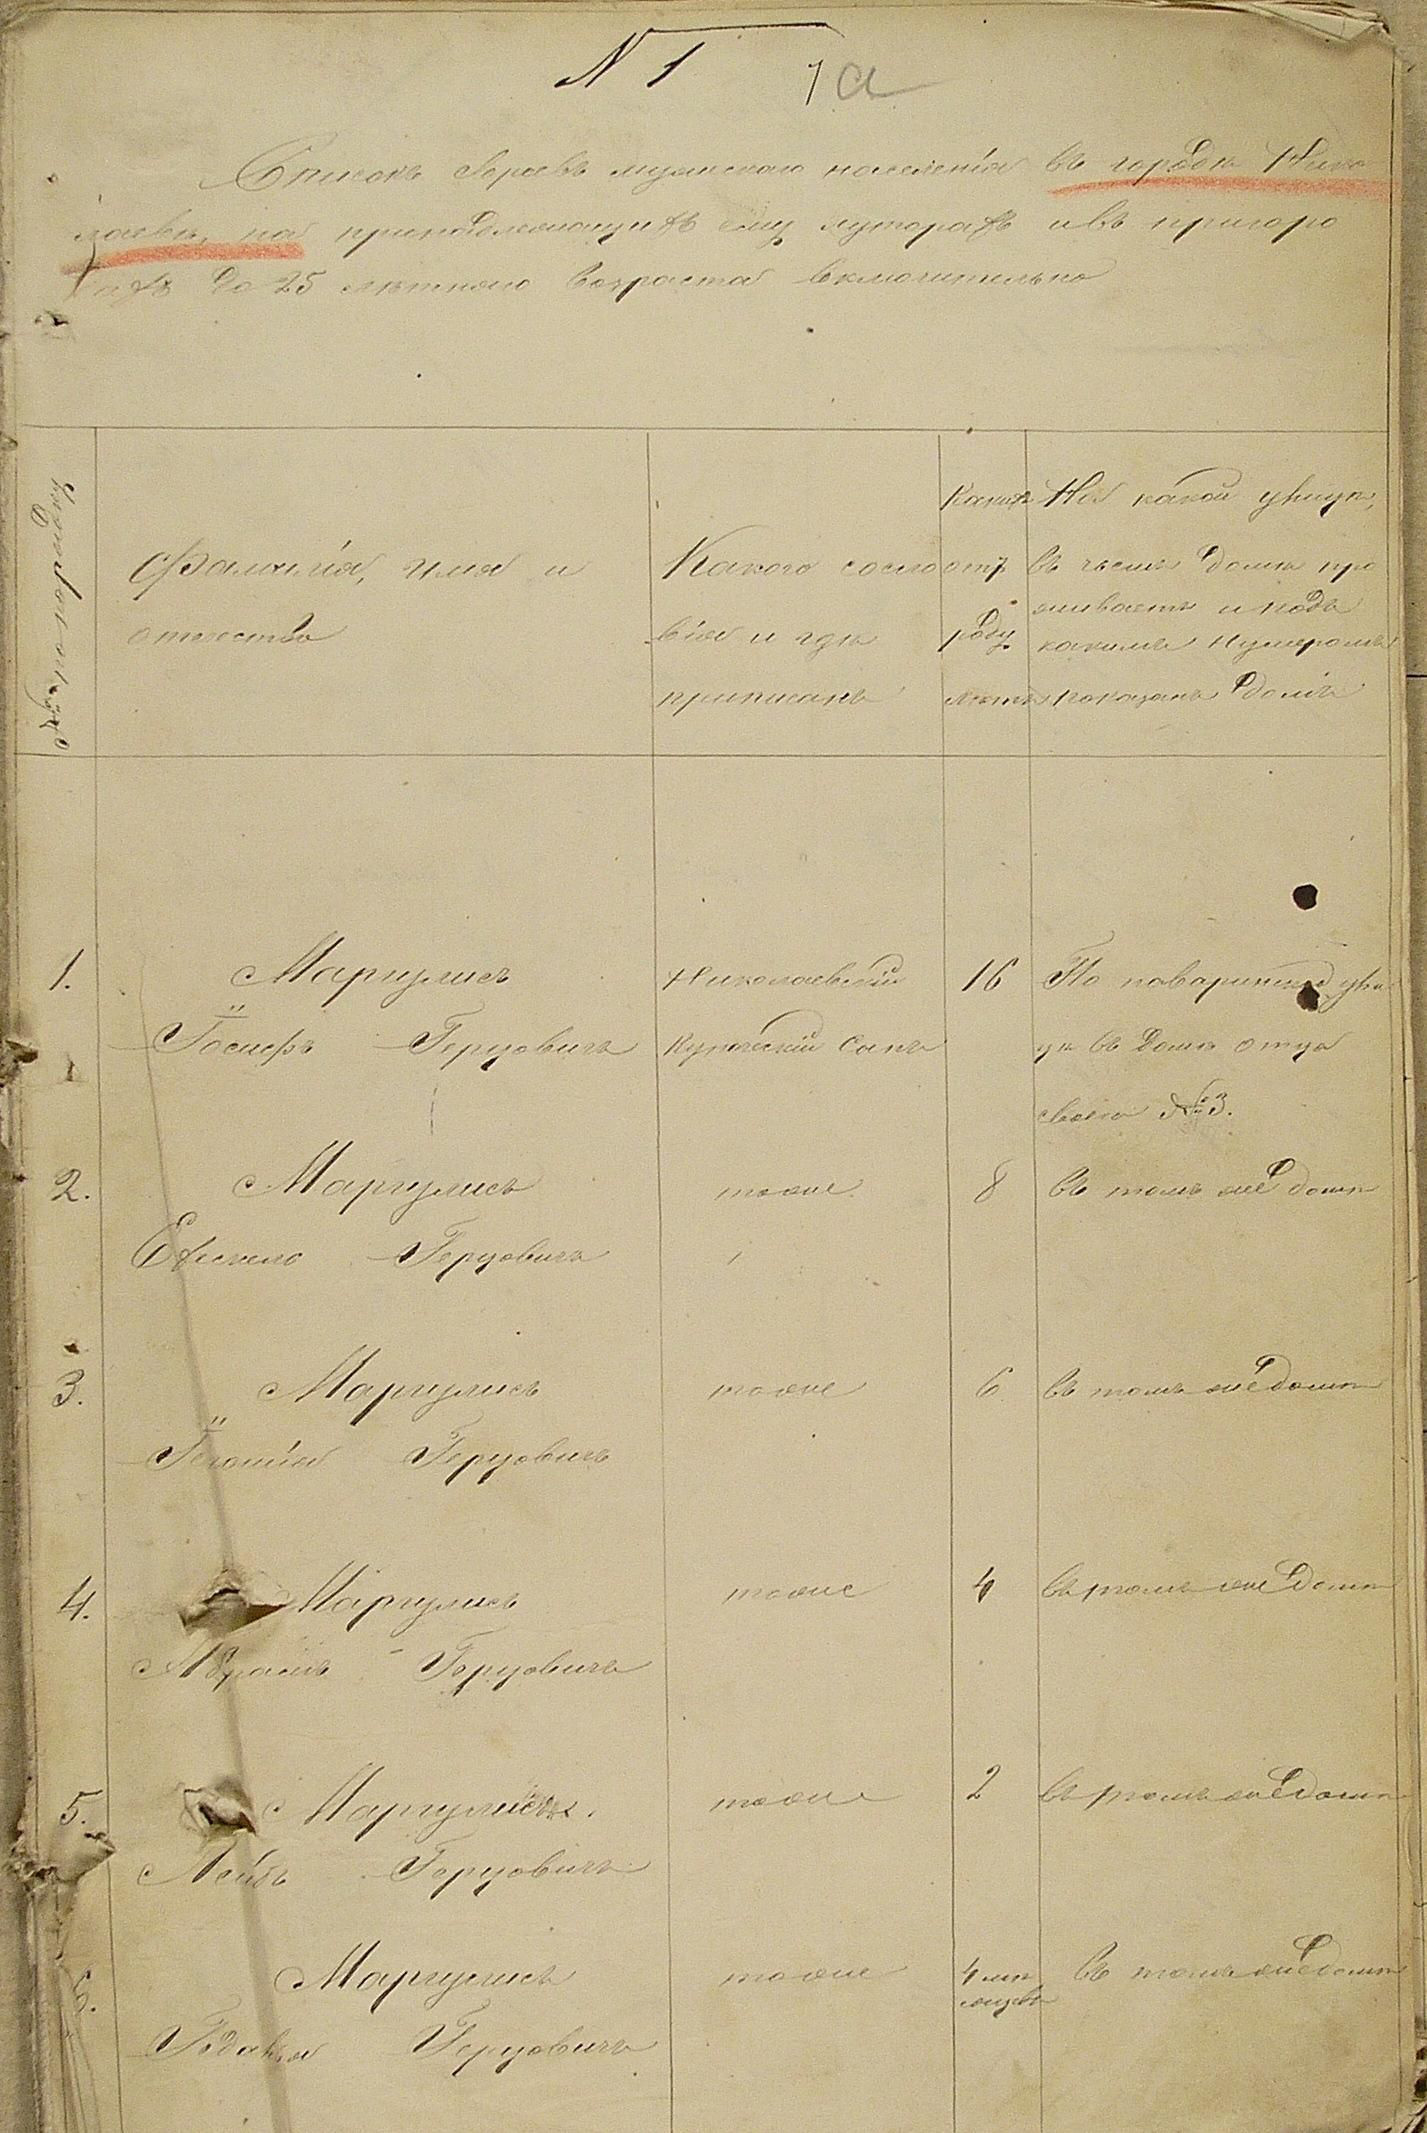 N 1 1 a
Списокъ евреевъ мужескаго населенія въ городѣ Нико
лаевѣ, на принадлежащихъ ему хуторахъ и въ пригоро
дѣ до 25 лѣтняго возраста включительно
Фамилія, имя и
отечество
Какого сосло
вія и гдѣ
приписанъ
Какихъ
отъ
роду
лѣтъ
На какой улицѣ,
въ чьемъ домѣ про
живаетъ и подъ
какимъ нумеромъ
показанъ домъ
1. Маргулисъ Николаевскій 16 По поваринской ули
Іосифъ Герцовичъ купеческій сынъ цѣ въ домѣ отца
своего № 3.
2. Маргулисъ тоже 8 въ томъ же домѣ
Герцовичъ
3. Маргулисъ тоже 6 въ томъ же домѣ
Герцовичъ
4. Маргулисъ тоже 4 въ томъ же домѣ
Абрамъ Герцовичъ
5. Маргулисъ. тоже 2 въ томъ же домѣ
Лейбъ Герцовичъ
6. Маргулисъ тоже 4 мѣ въ томъ же домѣ
сяцевъ
Герцовичъ